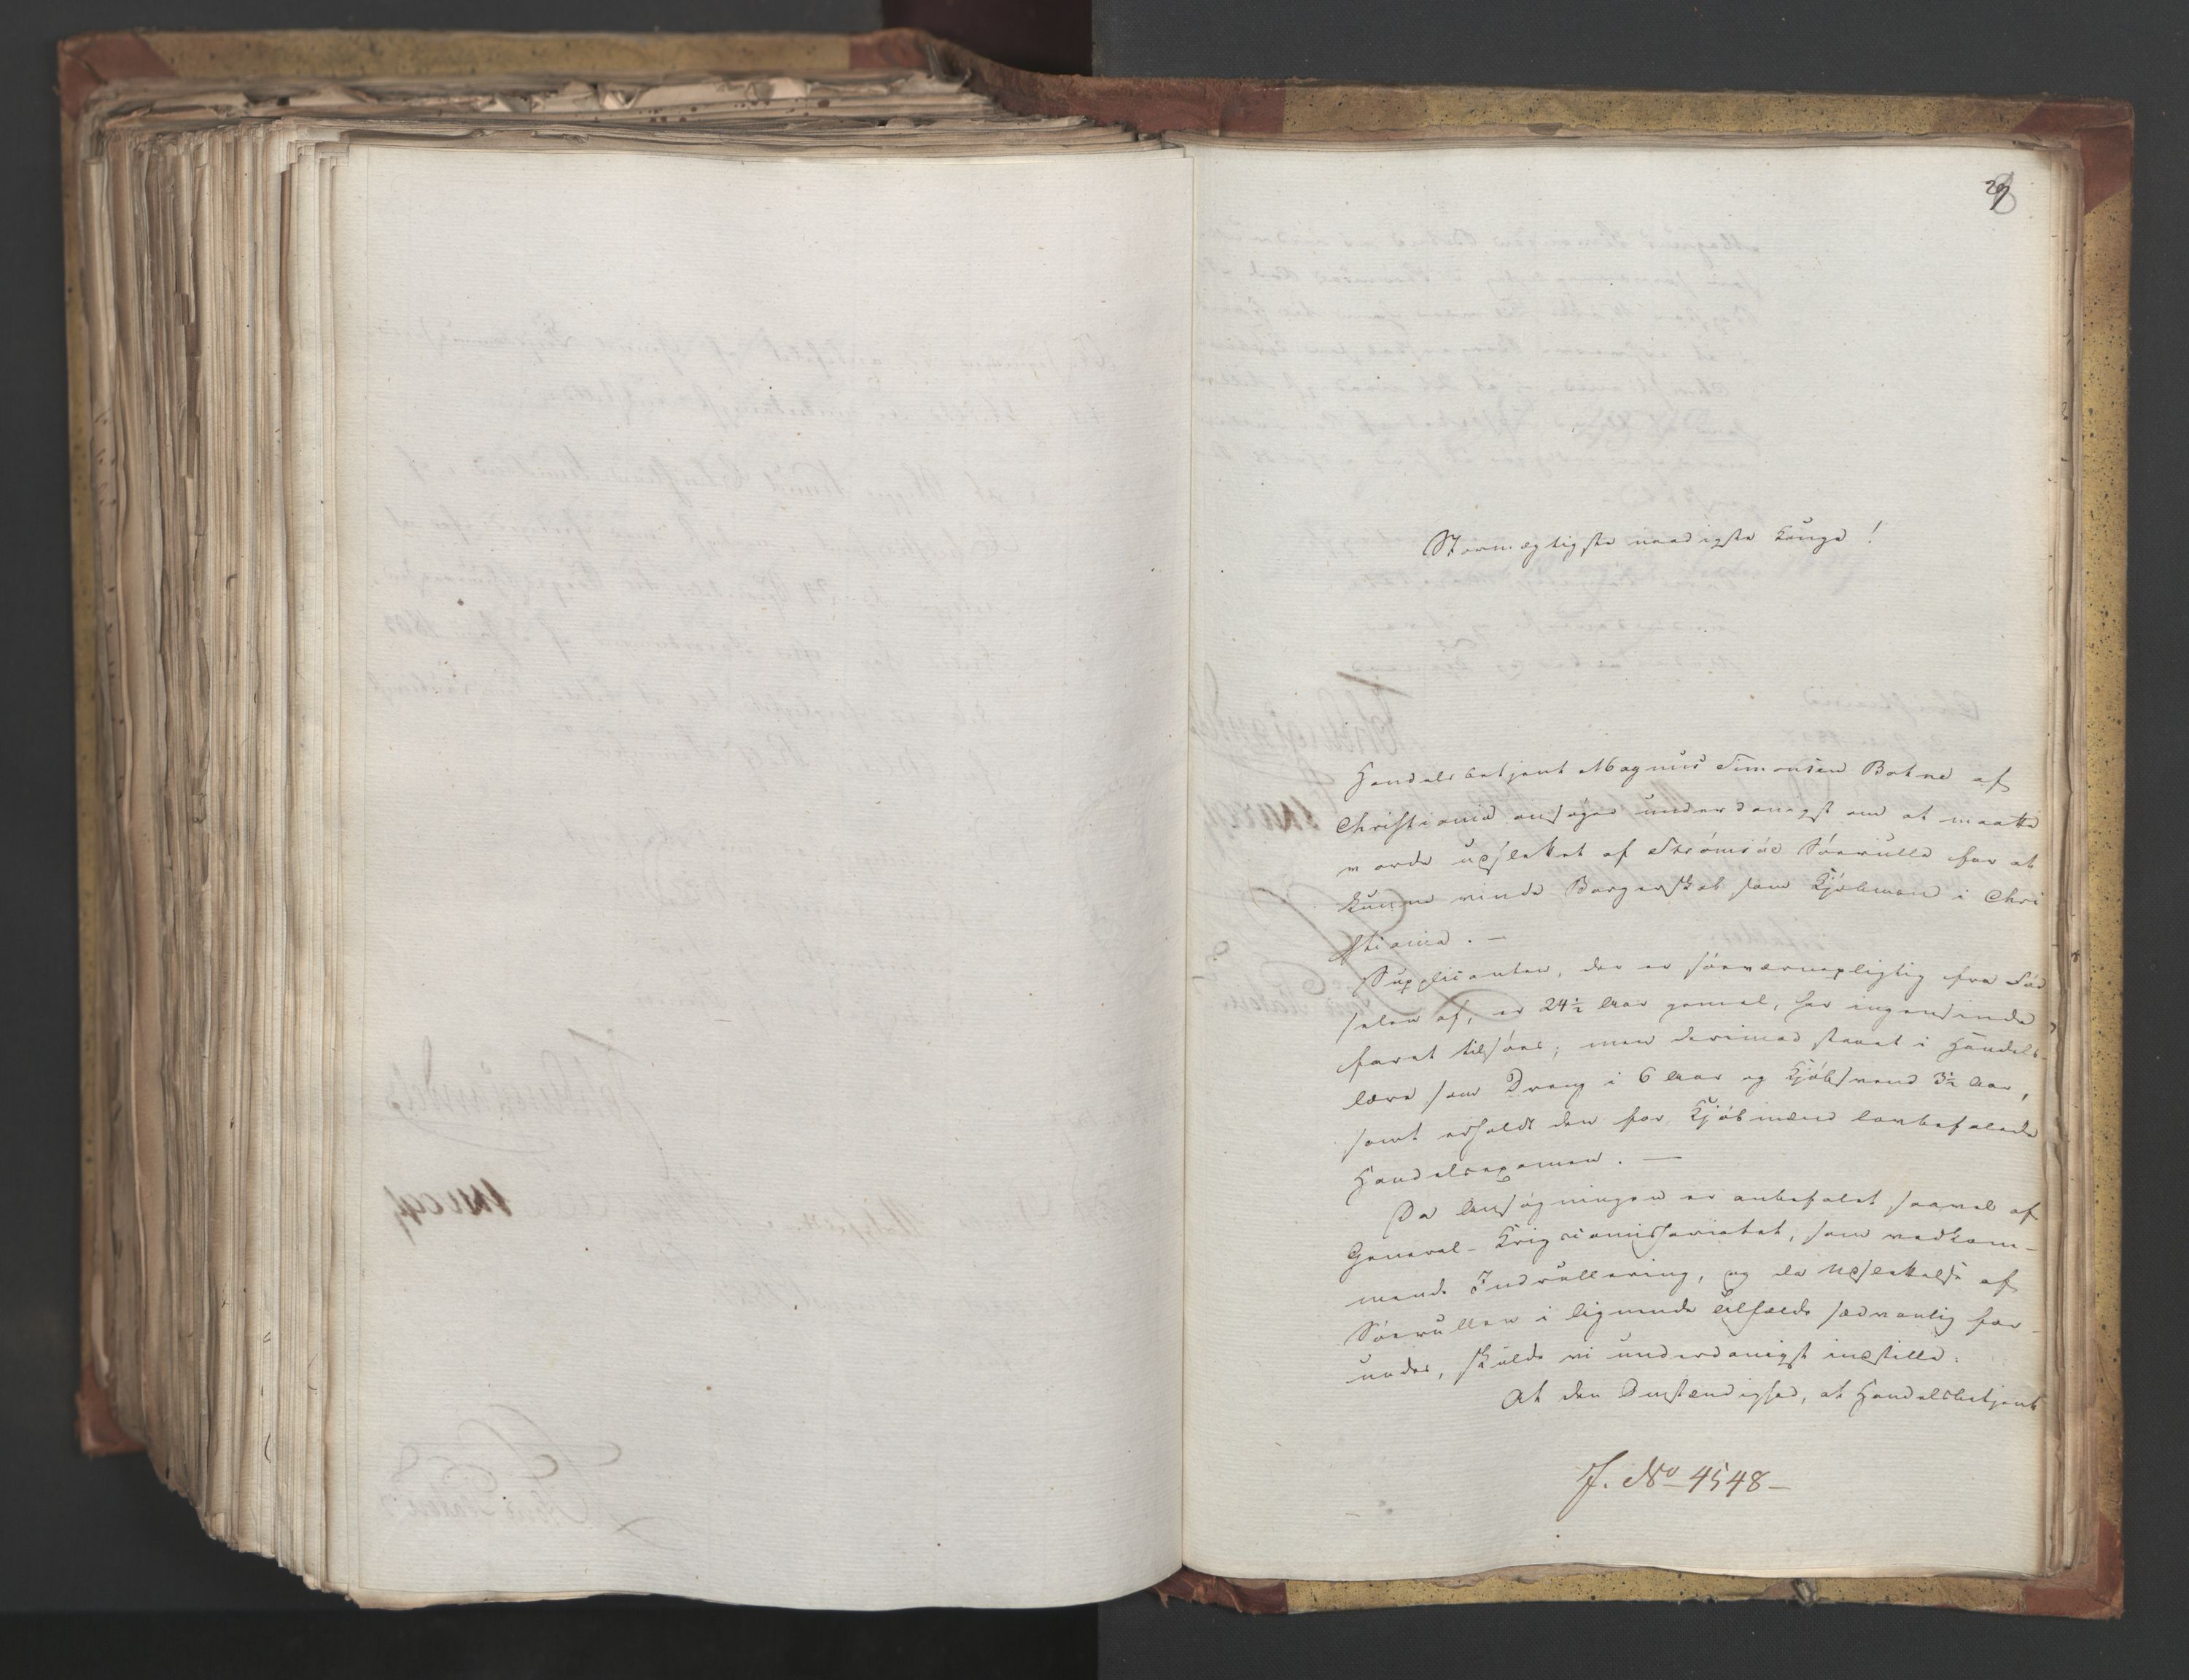 29
Stormægtigste naadigste Konge!
Handelsbetjent Magnus Simonsen Botne af
Christiania ansøger underdanigst om at maatte
vorde udslettet af Strömsöe Söerulle for at
kunne vinde Borgerskab som Kjøbmand i Chri
stiania. —
Supplicanten, der er söeværnepligtig fra Föd
selen af, er 24½ Aar gammel, har ingensinde
faret tilsöes; men derimod staaet i Handels-
lære som Dreng i 6 Aar og Kjöbsvend 3½ Aar,
samt erholdt den for Kjöbmænd lovbefalede
Handelsexamen. —
Da Ansøgningen er anbefalet saavel af
General-Krigscomissariatet, som vedkom-
mende Indrullering, og da Udslettelse af
Söerullen i lignende Tilfælde sædvanlig for-
undes, skulde vi underdanigst indstille:
At den Omstændighed, at Handelsbetjent
J. No 4548—